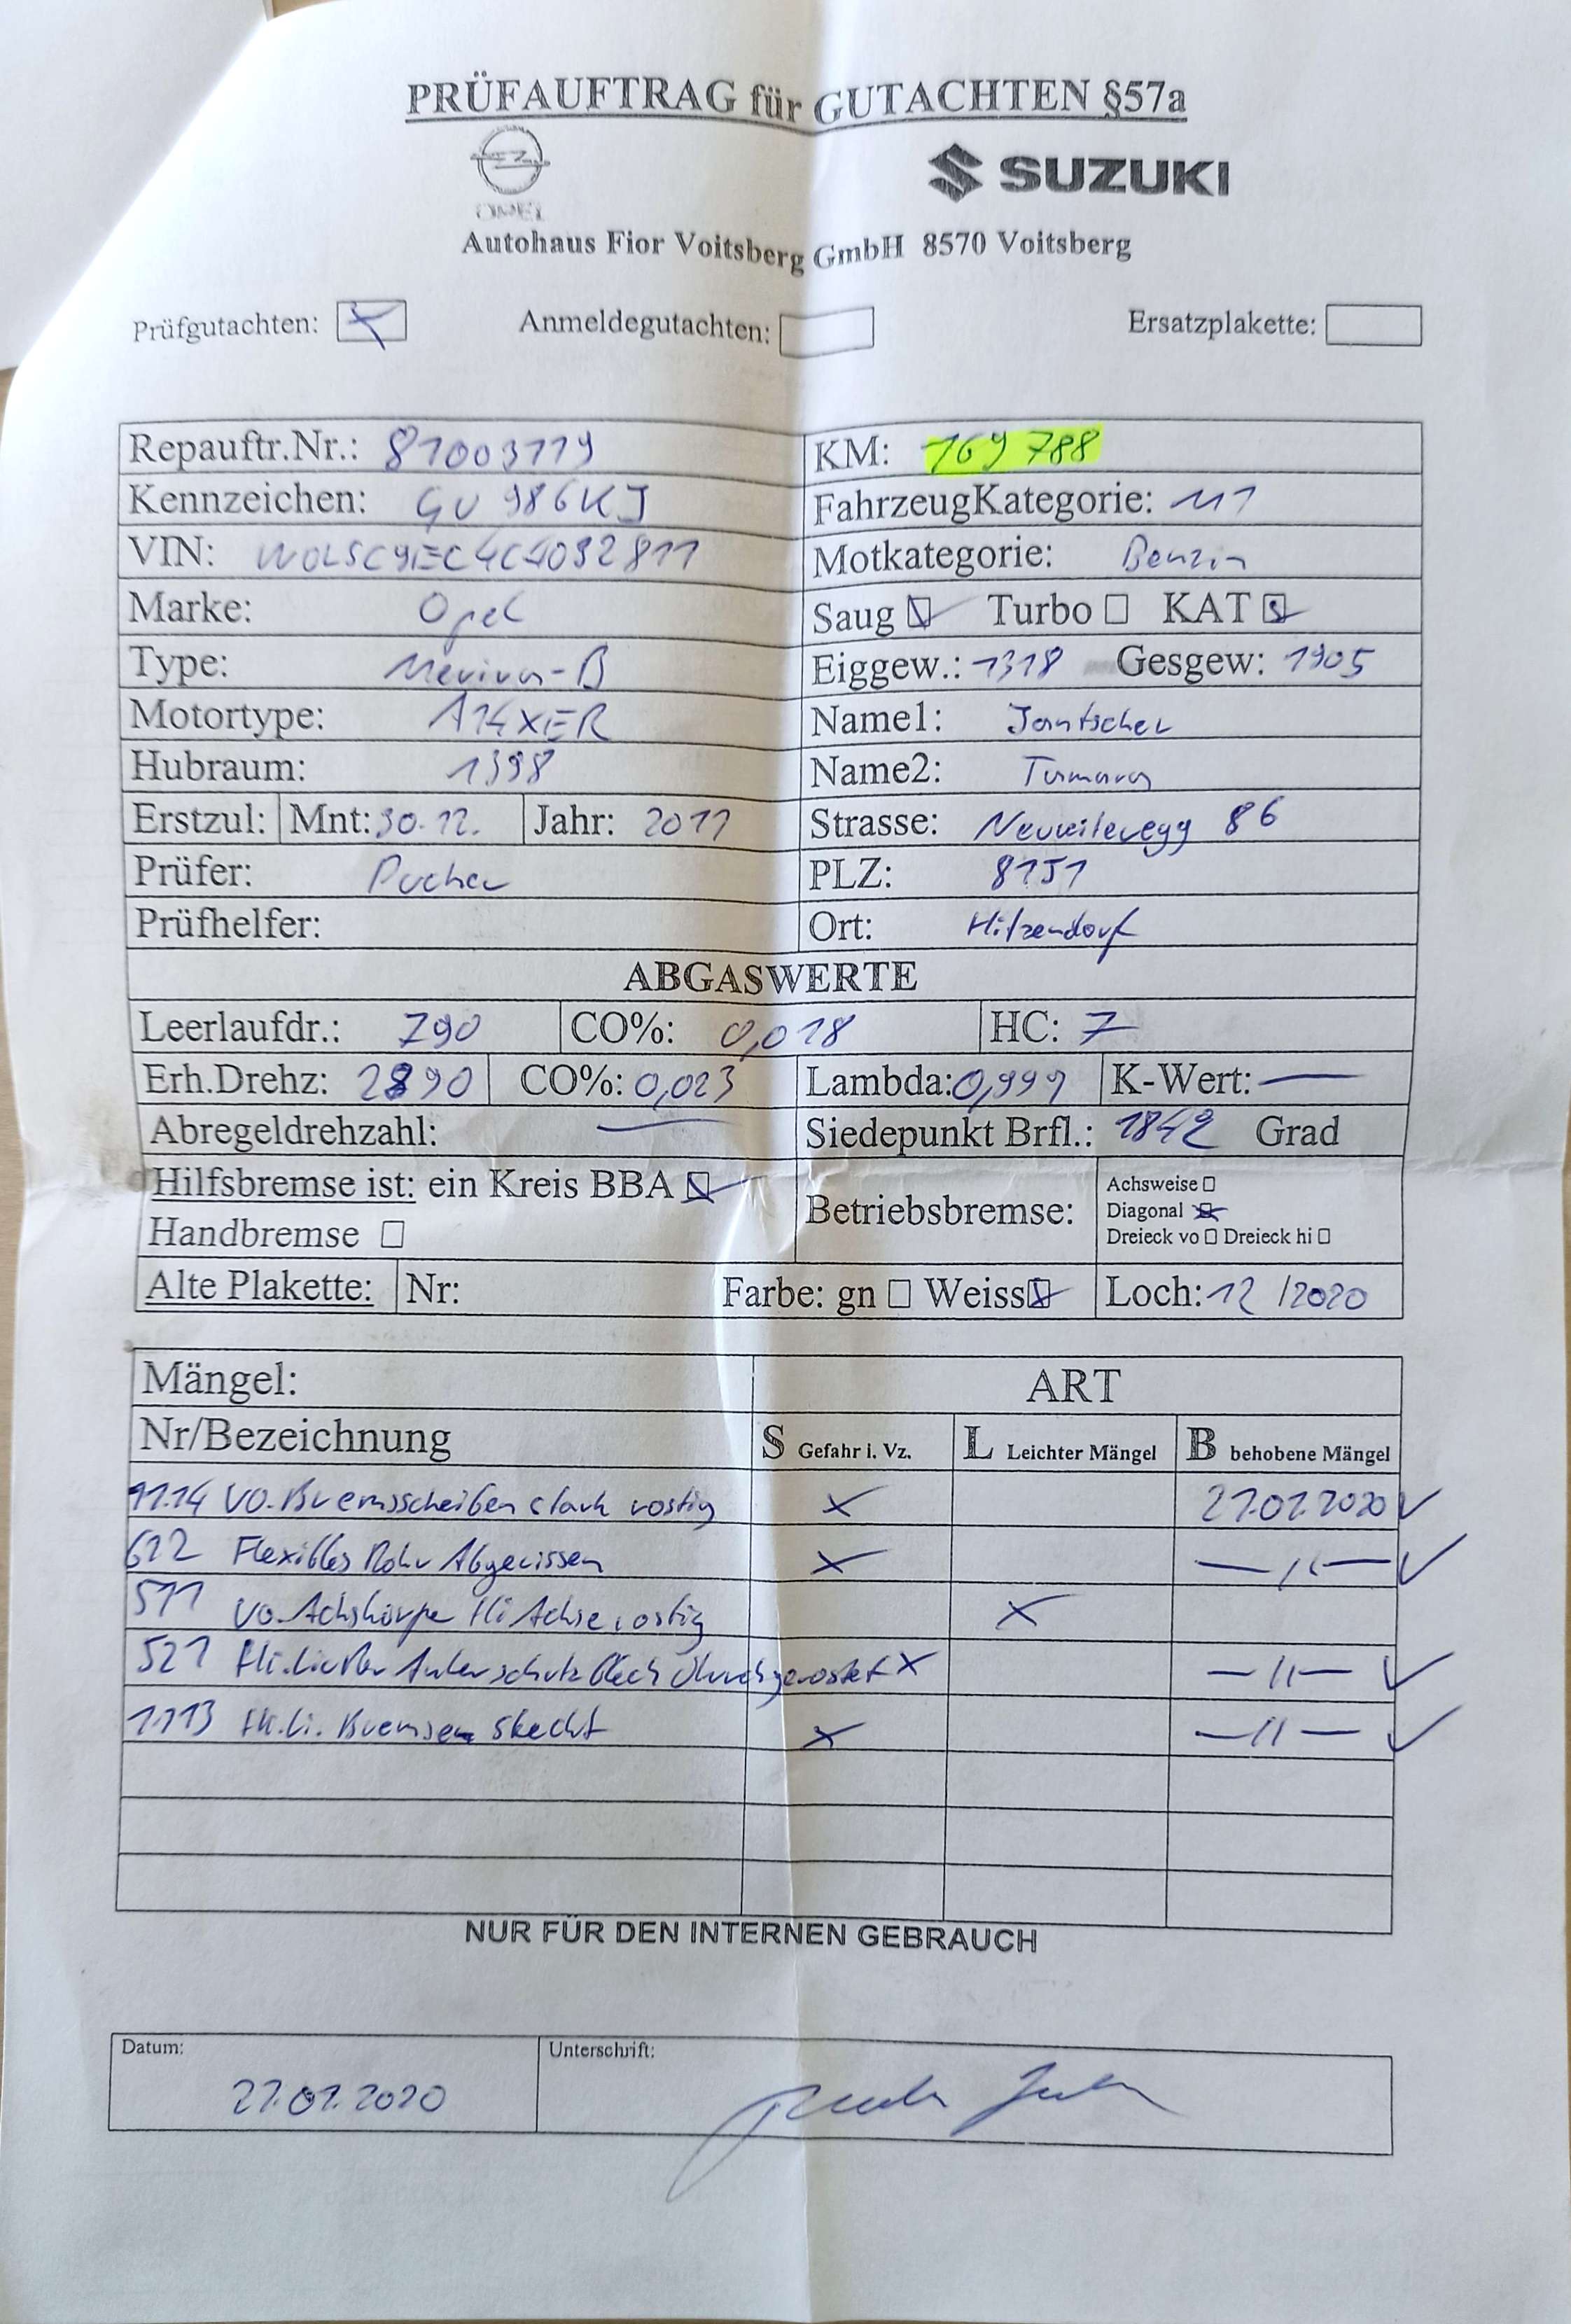 PRÜFAUFTRAG für GUTACHTEN §57a
OPEL SUZUKI
Autohaus Fior Voitsberg GmbH 8570 Voitsberg
Prüfgutachten: Anmeldegutachten: Ersatzplakette:
Repauftr.Nr.: 81003119 KM: 169 788
Kennzeichen: GU 986KJ FahrzeugKategorie: M1
VIN: Motkategorie: Benzin
Marke: Opel Saug Turbo KAT
Type: Meriva-B Eiggew.: 1318 Gesgew: 1905
Motortype: A14XER Name1: Jantscher
Hubraum: 1398 Name2: Tamara
Erstzul: Mnt: 30.12. Jahr: 2011 Strasse: 86
Prüfer: Pucher PLZ: 8151
Prüfhelfer: Ort: Hitzendorf
ABGASWERTE
Leerlaufdr.: 790 CO%: 0,018 HC: 7
Erh.Drehz: 2890 CO%: 0,023 Lambda: 0,999 K-Wert: —
Abregeldrehzahl: — Siedepunkt Brfl.: Grad
Hilfsbremse ist: ein Kreis BBA Betriebsbremse: Achsweise
Diagonal
Handbremse Dreieck vo Dreieck hi
Alte Plakette: Nr: Farbe: gn Weiss Loch: 12 /2020
Mängel: ART
Nr/Bezeichnung S Gefahr i. Vz. L Leichter Mängel B behobene Mängel
vo. Bremsscheiben stark rostig X 21.01.2020 ✓
622 Flexibles Rohr Abgerissen X —〃— ✓
511 vo. Hi Achse rostig X
521 Hi. Ankerschutzblech durchgerostet X —〃— ✓
1.1.13 Hi. li. Bremse steckt X —〃— ✓
NUR FÜR DEN INTERNEN GEBRAUCH
Datum: Unterschrift:
21.01.2020